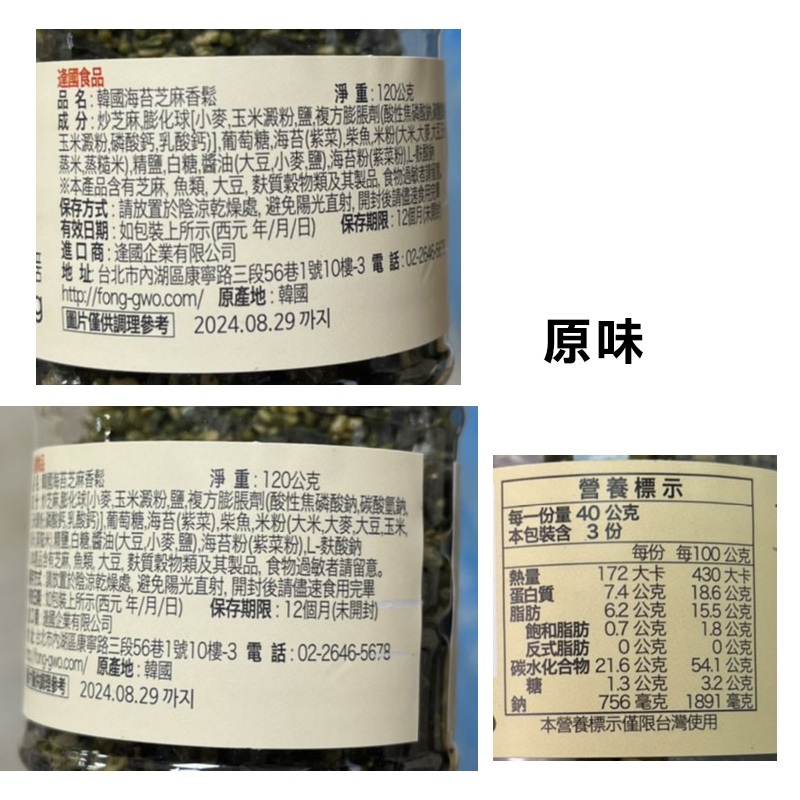 逢國食品
品 名：韓國海苔芝麻香鬆 淨 重：120公克
成 分：炒芝麻,膨化球[小麥,玉米澱粉,鹽,複方膨脹劑(酸性焦磷酸鈉,
玉米澱粉,磷酸鈣,乳酸鈣)],葡萄糖,海苔(紫菜),柴魚,米粉(大米,大麥,
蒸米,蒸糙米),精鹽,白糖,醬油(大豆,小麥,鹽),海苔粉(紫菜粉),L-麩酸鈉
※本產品含有芝麻, 魚類, 大豆, 麩質穀物類及其製品, 食物過敏者請留意。
保存方式：請放置於陰涼乾燥處, 避免陽光直射, 開封後請儘速食用完畢
有效日期：如包裝上所示(西元 年/月/日) 保存期限：12個月(未開封)
進 口 商：逢國企業有限公司
地 址：台北市內湖區康寧路三段56巷1號10樓-3 電 話：02-2646-5678
http://fong-gwo.com/ 原產地：韓國
圖片僅供調理參考 2024.08.29 까지
原味
韓國海苔芝麻香鬆 淨 重：120公克
炒芝麻,膨化球[小麥,玉米澱粉,鹽,複方膨脹劑(酸性焦磷酸鈉,碳酸氫鈉,
磷酸鈣,乳酸鈣)],葡萄糖,海苔(紫菜),柴魚,米粉(大米,大麥,大豆,玉米,
精鹽,白糖,醬油(大豆,小麥,鹽),海苔粉(紫菜粉),L-麩酸鈉
品含有芝麻, 魚類, 大豆, 麩質穀物類及其製品, 食物過敏者請留意。
請放置於陰涼乾燥處, 避免陽光直射, 開封後請儘速食用完畢
如包裝上所示(西元 年/月/日) 保存期限：12個月(未開封)
逢國企業有限公司
台北市內湖區康寧路三段56巷1號10樓-3 電 話：02-2646-5678
fong-gwo.com/ 原產地：韓國
圖片僅供調理參考 2024.08.29 까지
營養標示
每一份量 40 公克
本包裝含 3 份
每份 每100 公克
熱量 172 大卡 430 大卡
蛋白質 7.4 公克 18.6 公克
脂肪 6.2 公克 15.5 公克
飽和脂肪 0.7 公克 1.8 公克
反式脂肪 0 公克 0 公克
碳水化合物 21.6 公克 54.1 公克
糖 1.3 公克 3.2 公克
鈉 756 毫克 1891 毫克
本營養標示僅限台灣使用